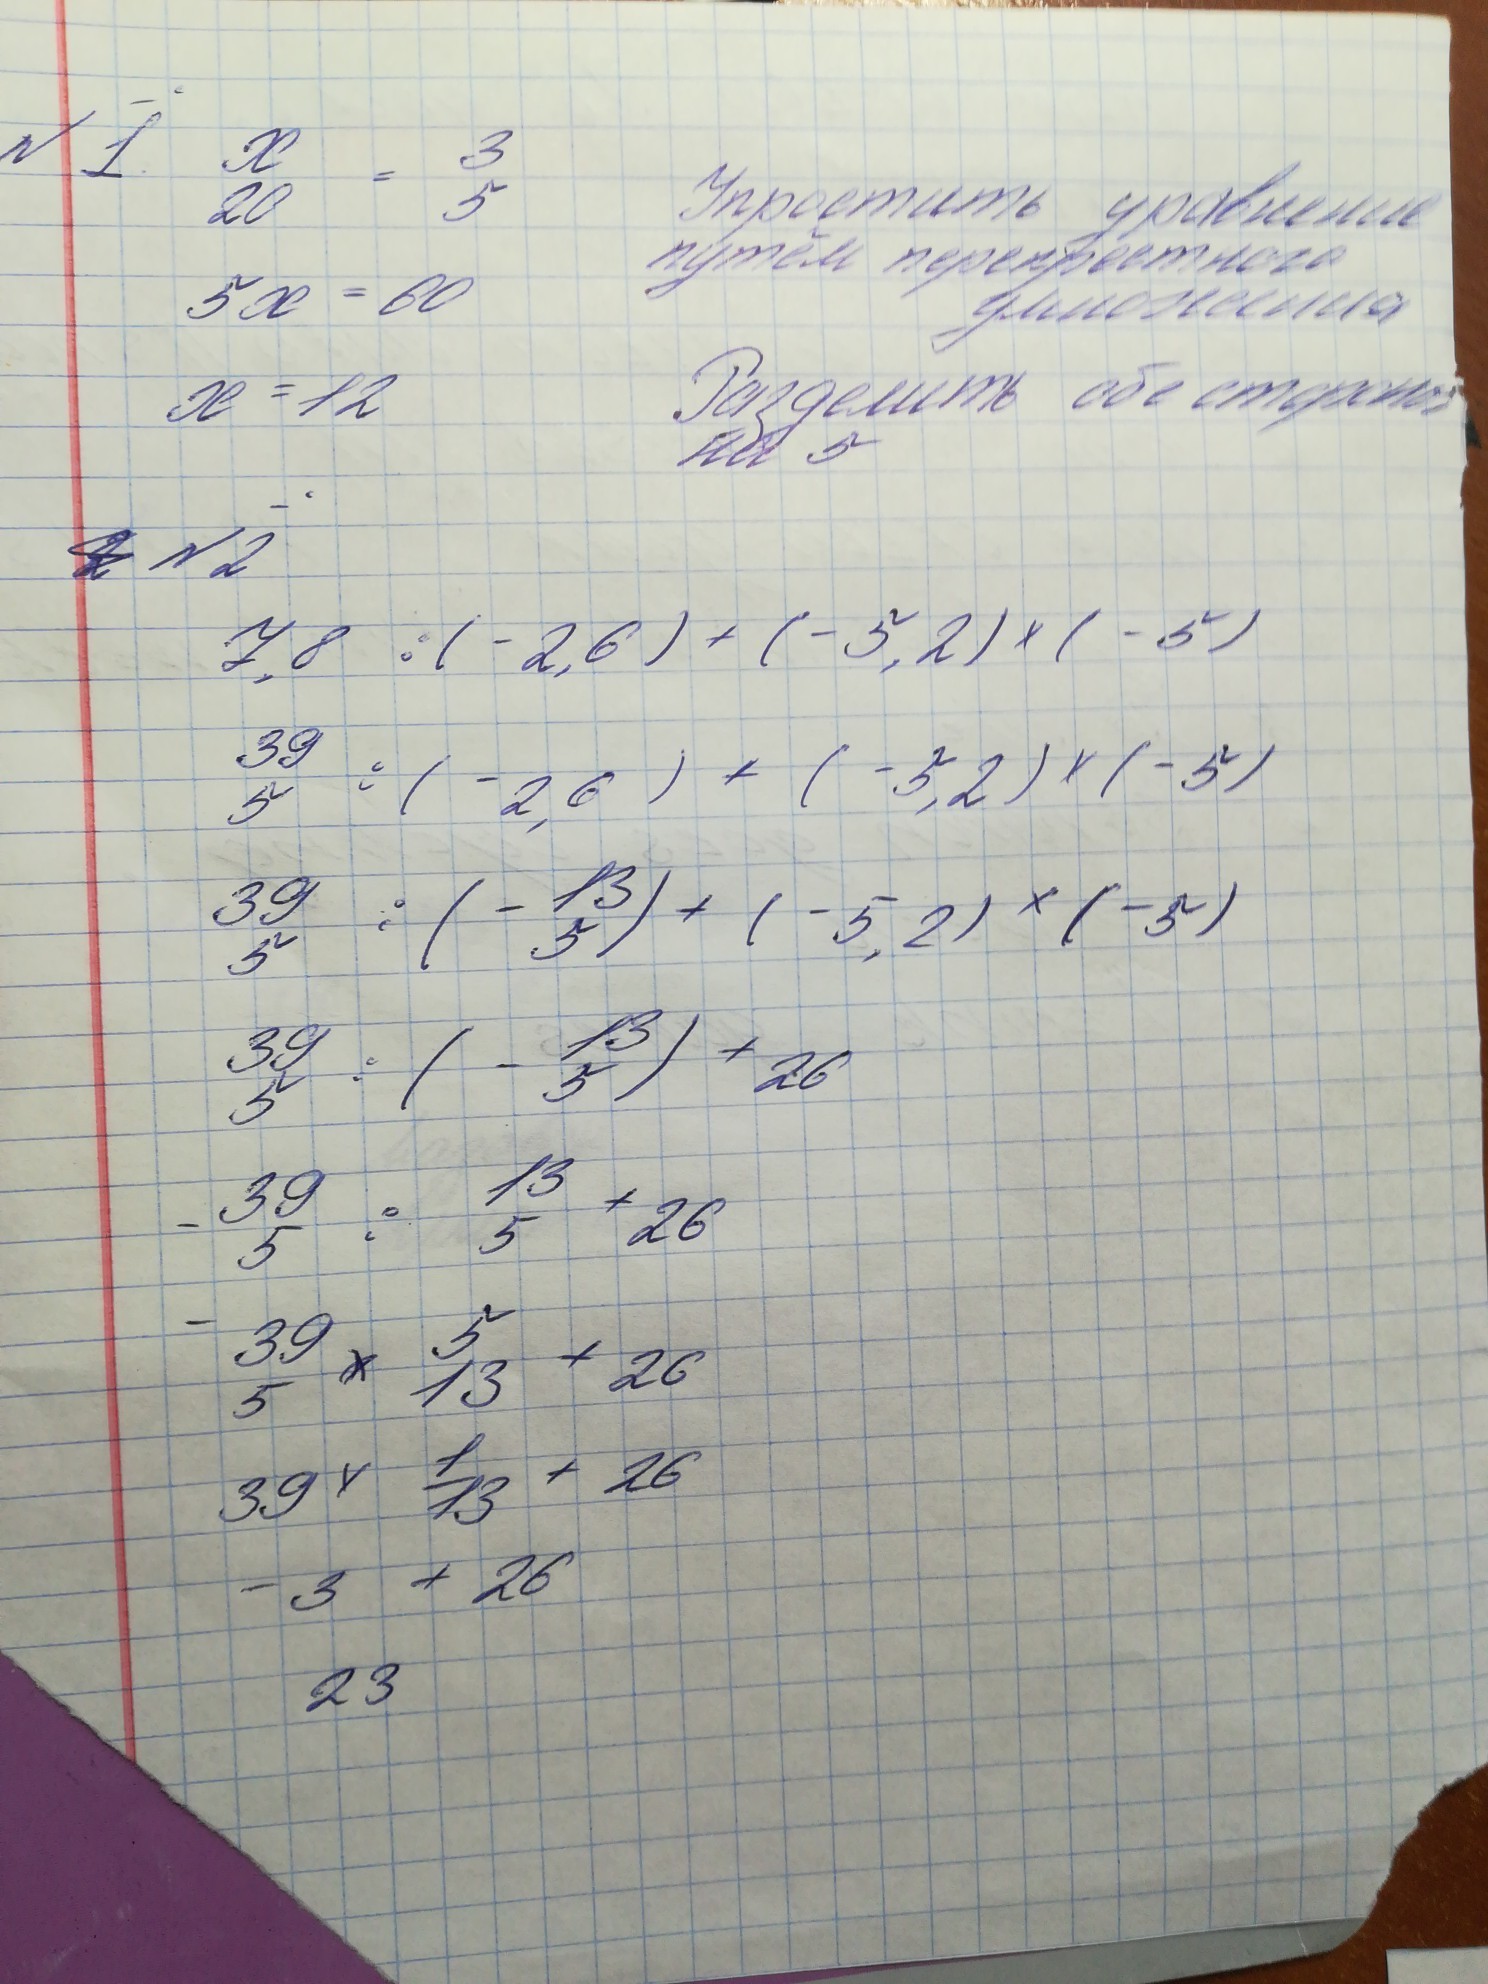 N 1. x = 3
20 5
Упростить уравнение
путём перекрестного
умножения
5x = 60
x = 12
Разделить обе стороны
на 5
N 2
7,8 :(-2,6)+(-5,2)×(-5)
39
5 :(-2,6)+(-5,2)×(-5)
39 :(-13)+(-5,2)×(-5)
5 5
39 :(-13)+26
5 5
-39 : 13 +26
5 5
-39 × 5 +26
5 13
39 × 1 +26
13
-3 +26
23